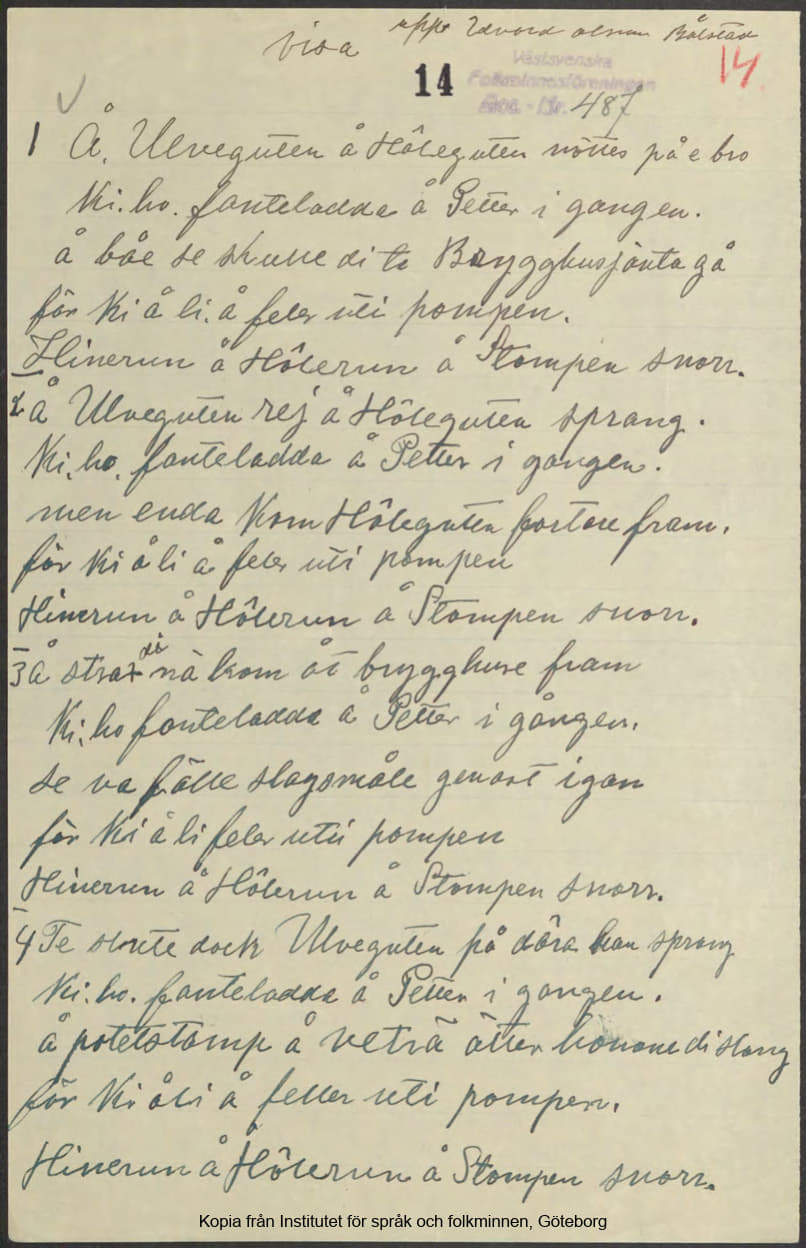 visa uppt Edvard Olsson Bålstad
14 Västsvenska 14
Folkminnesföreningen
Acc. - Nr. 487
1 Å, Ulveguten å Hôleguten möttes på e bro
Ki. ho. fanteladda å Petter i gangen.
å båe se skulle di te Brygghusjänta gå
för Ki å li. å feler uti pompen.
Hinerun å Hôlerun å Stompen snorr.
2 å Ulveguten rej å Hôleguten sprang.
Ki, ho, fanteladda å Petter i gangen.
men enda Kom Hôleguten fortare fram.
för Ki å li å feler uti pompen
Hinerun å Hôlerun å Stompen snorr.
3 å strax di nå kom åt brygghuse fram
Ki, ho fanteladda å Petter i gången.
se va fälle slagsmåle genast igan
för Ki å li feler uti pompen
Hinerun å Hôlerun å Stompen snorr.
4 Te slute dock Ulveguten på dôra han sprang
Ki. ho. fanteladda å Petter i gangen.
å potetstamp å veträ ätter honom di slang
för Ki å li å feller uti pompen.
Hinerun å Hôlerun å Stompen snorr.
Kopia från Institutet för språk och folkminnen, Göteborg